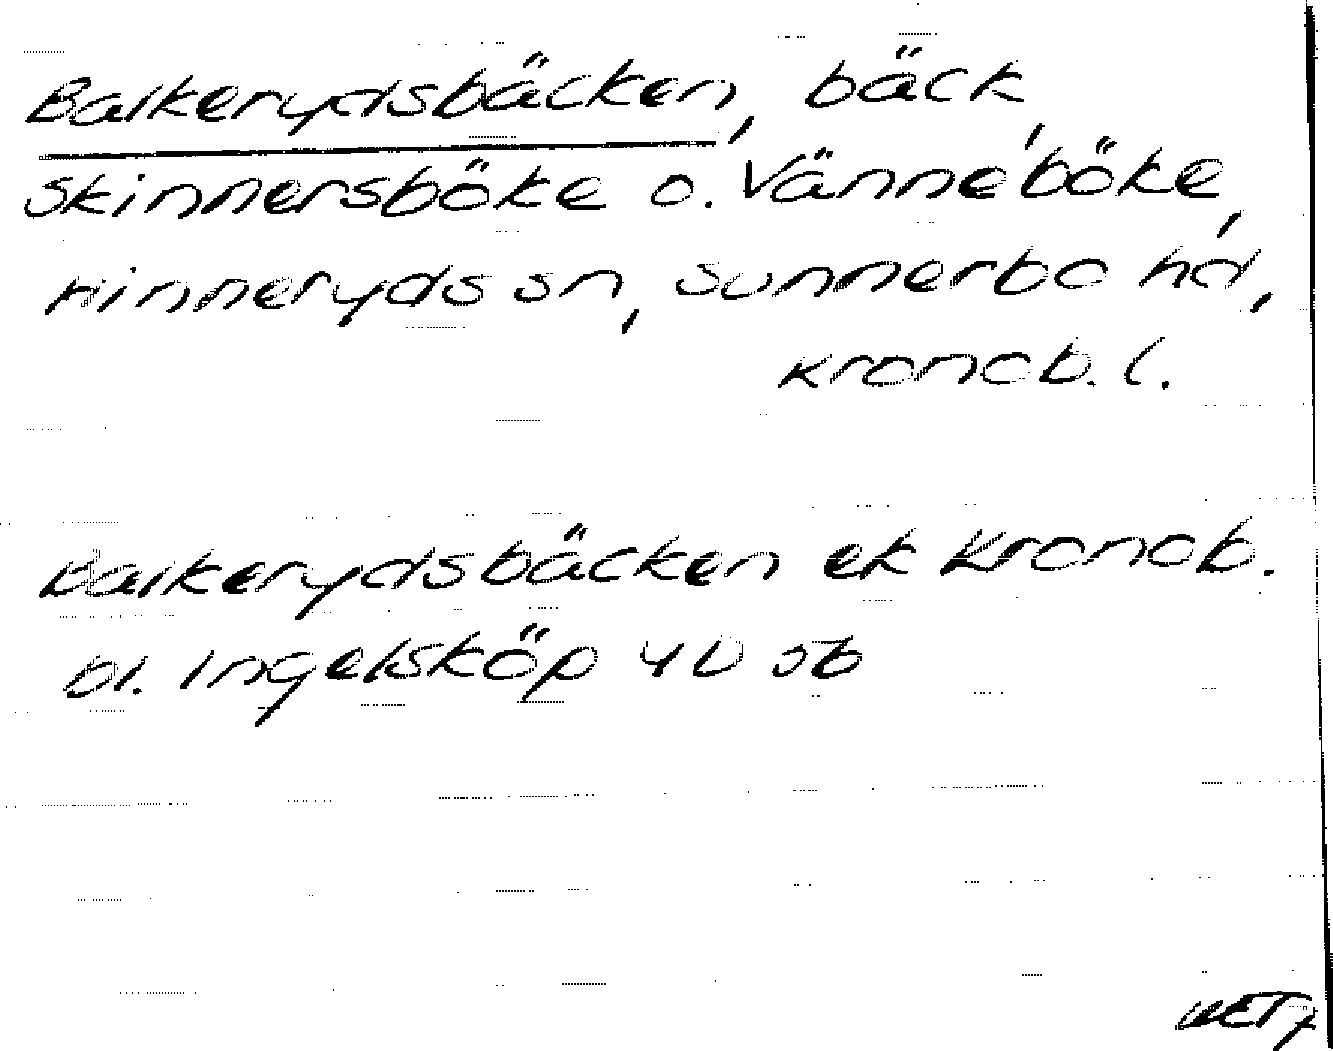 Balkerydsbäcken, bäck,
Skinnersböke o. Vänneböke,
Hinneryds sn, Sunnerbo hd,
Kronob. l.
Balkerydsbäcken ek Kronob.
bl. Ingelsköp 4D 5b